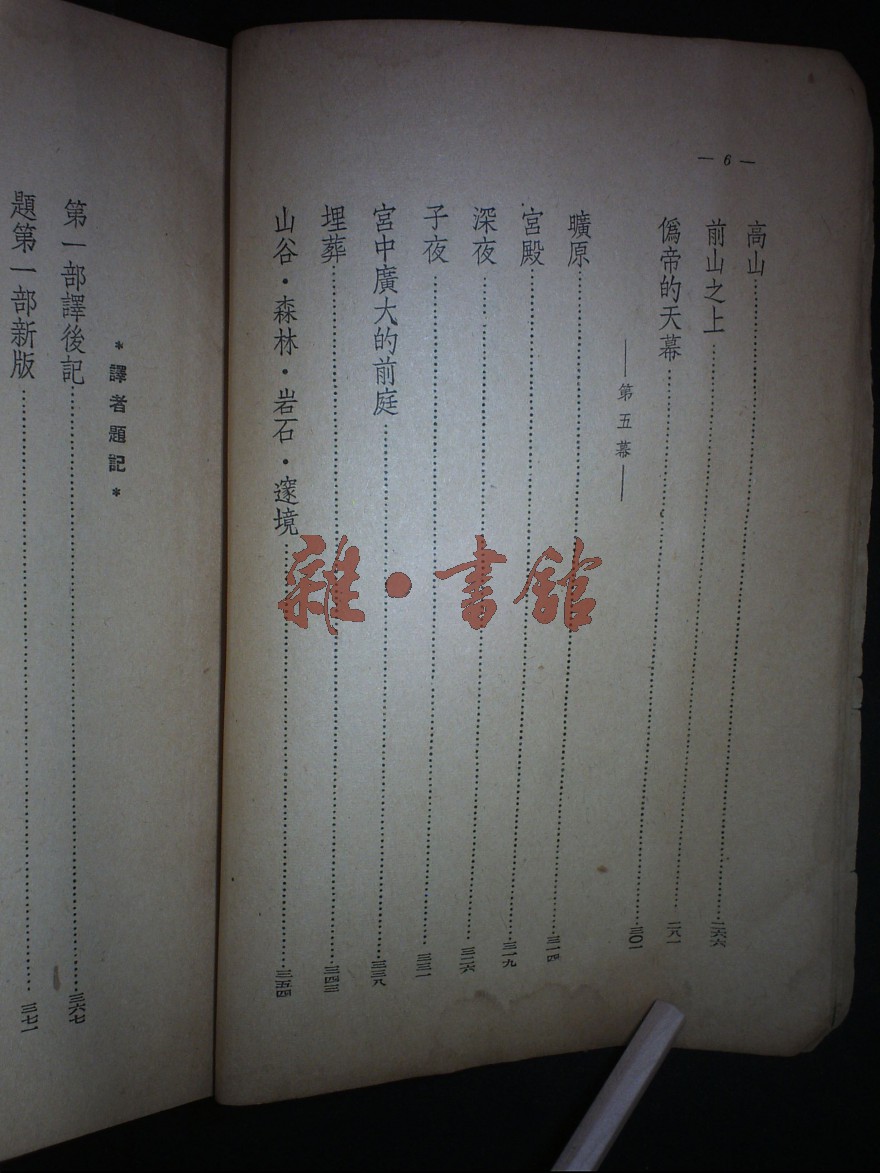 — 6 —
高山……二六六
前山之上……二八一
僞帝的天幕……三〇一
——第五幕——
曠原……三一四
宮殿……三一九
深夜……三二六
子夜……三三一
宮中廣大的前庭……三三八
埋葬……三四三
山谷・森林・岩石・邃境……三五四
*譯者題記*
第一部譯後記……三六七
題第一部新版……三七一
雜・書館